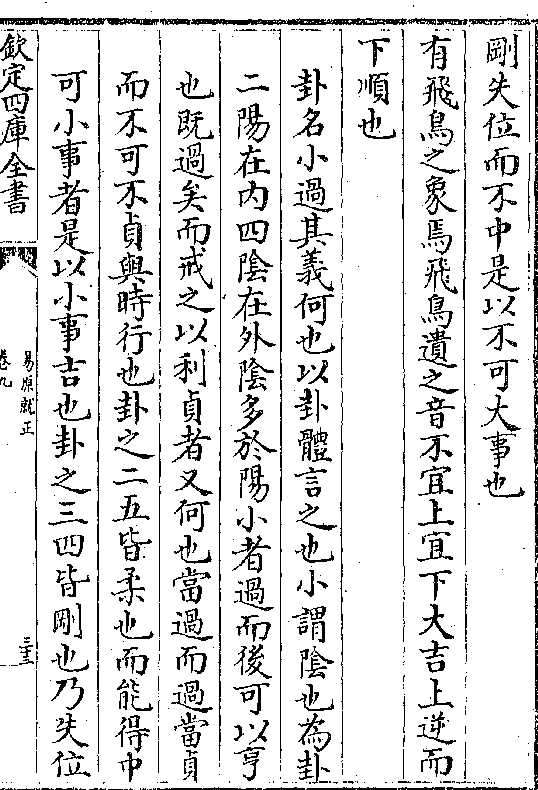 剛失位而不中是以不可大事也
有飛鳥之象焉飛鳥遺之音不宜上宜下大吉上逆而
下順也
卦名小過其義何也以卦體言之也小謂陰也為卦
二陽在内四陰在外陰多於陽小者過而後可以亨
也既過矣而戒之以利貞者又何也當過而過當貞
而不可不貞與時行也卦之二五皆柔也而能得中
可小事者是以小事吉也卦之三四皆剛也乃失位
欽定四庫全書
易原就正
卷九
三十三